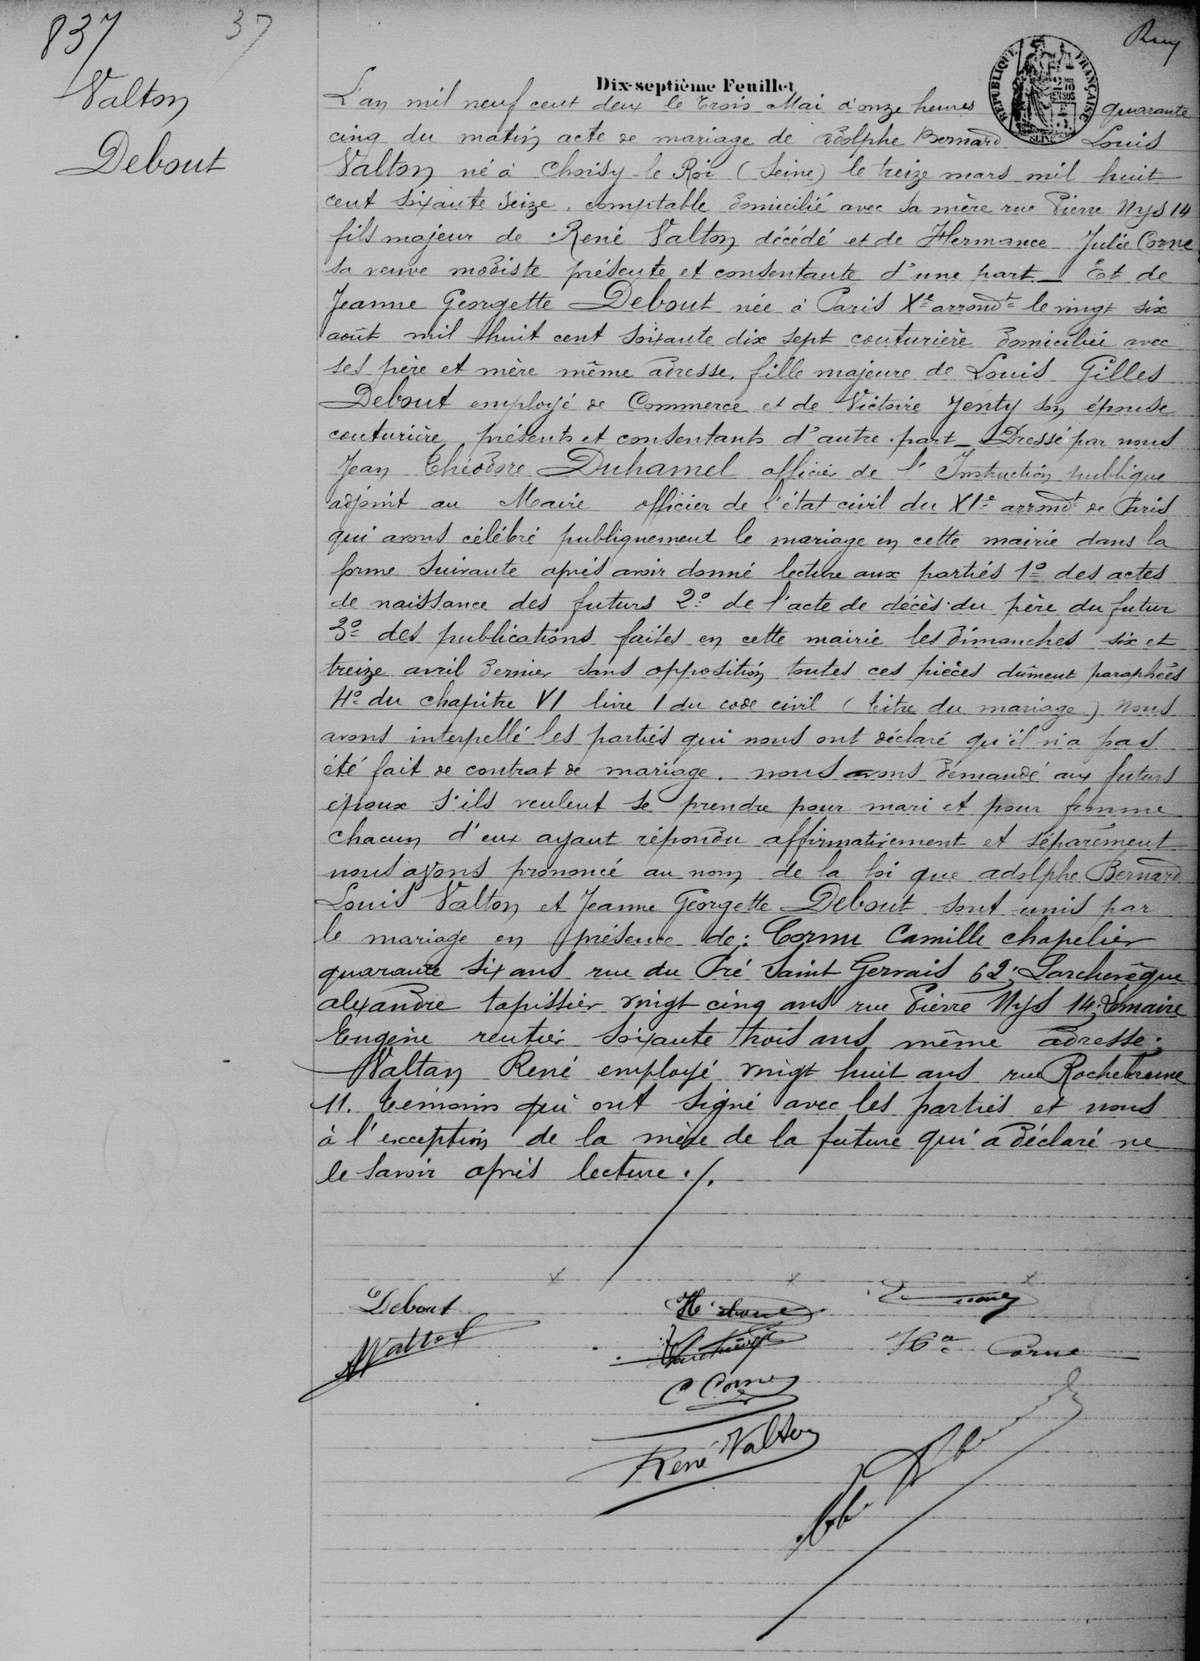 837
37
Valton
Debout
Dix-septième Feuillet
RÉPUBLIQUE FRANÇAISE
L'an mil neuf cent deux le trois Mai à onze heures quarante
cinq du matin acte de mariage de Adolphe Bernard Louis
Valton né à Choisy-le-Roi (Seine) le treize mars mil huit
cent soixante seize, comptable domicilié avec sa mère rue Pierre Nys 14
fils majeur de René Valton décédé et de Hermance Julie Corne
sa veuve modiste présente et consentante d'une part _ Et de
Jeanne Georgette Debout née à Paris Xe arrondt le vingt six
août mil huit cent soixante dix sept couturière domiciliée avec
ses père et mère même adresse, fille majeure de Louis Gilles
Debout employé de Commerce et de Victoire Jenty son épouse
couturière, présents et consentants d'autre part _ Dressé par nous
Jean Théodore Duhamel officier de l'Instruction publique
adjoint au Maire officier de l'état civil du XIe arrondt de Paris
qui avons célébré publiquement le mariage en cette mairie dans la
forme suivante après avoir donné lecture aux parties 1o des actes
de naissance des futurs 2o de l'acte de décès du père du futur
3o des publications faites en cette mairie les dimanches six et
treize avril dernier sans opposition, toutes ces pièces dûment paraphées
4o du chapitre VI livre I du code civil (titre du mariage) nous
avons interpellé les parties qui nous ont déclaré qu'il n'a pas
été fait de contrat de mariage. nous avons demandé aux futurs
époux s'ils veulent se prendre pour mari et pour femme
chacun d'eux ayant répondu affirmativement et séparément
nous avons prononcé au nom de la loi que Adolphe Bernard
Louis Valton et Jeanne Georgette Debout sont unis par
le mariage en présence de: Cornu Camille chapelier
quarante six ans rue du Pré Saint Gervais 62; Larchevêque
alexandre tapissier vingt cinq ans rue Pierre Nys 14; Lemaire
Eugène rentier soixante trois ans même adresse;
Valtan René employé vingt huit ans rue Rochebrune
11. témoins qui ont signé avec les parties et nous
à l'exception de la mère de la future qui a déclaré ne
le savoir après lecture ./.
Debout
AValton
Vve Corne
C Corne
René Valton